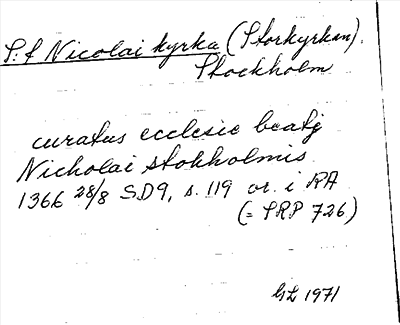 S:t Nicolai kyrka (Storkyrkan).
Stockholm
curatus ecclesie beatj
Nicholai stokholmis
1366 28/8 SD9, s. 119 or. i RA
(= SRP 726)
GL 1971